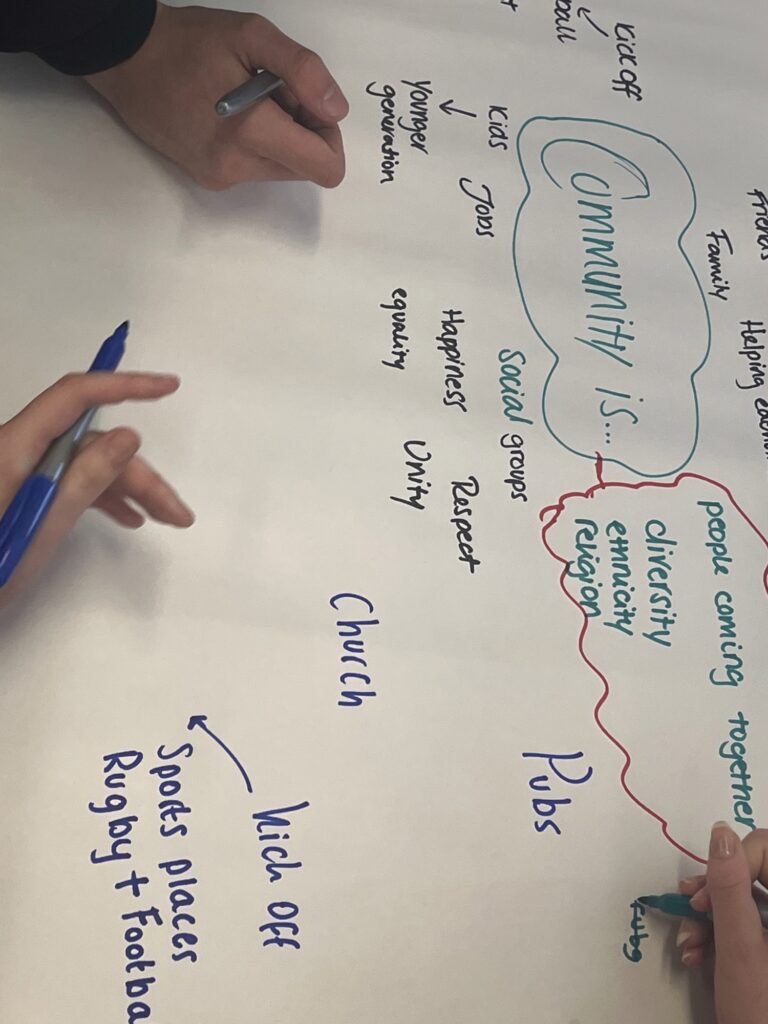 friends
Helping
Family
people coming together
Kick off
ball
Community is...
diversity
ethnicity
religion
Kids
Younger
generation
Jobs
Social groups
Happiness
equality
Respect
Unity
Pubs
Church
Kick Off
Sports places
Rugby + Footba